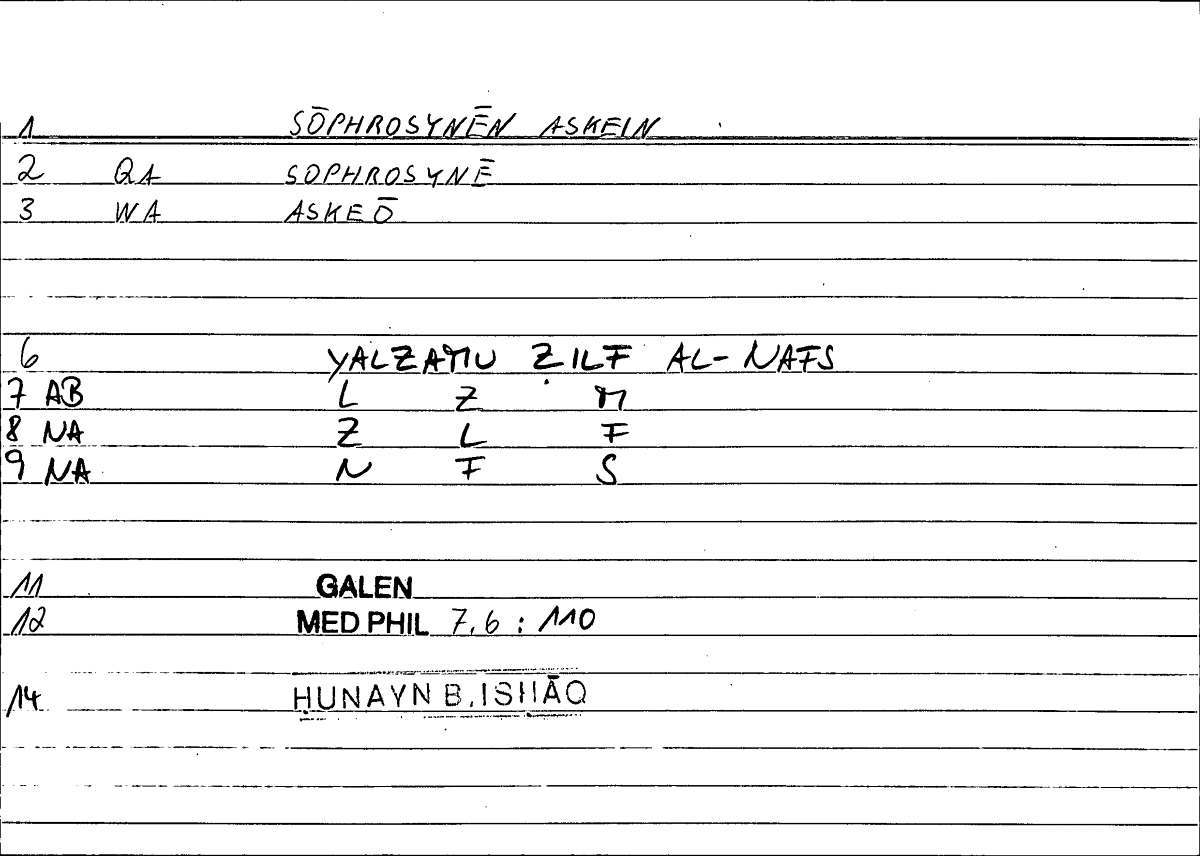 1 SŌPHROSYNĒN ASKEIN
2 QA SOPHROSYNĒ
3 WA ASKEŌ
6 YALZAMU ẒILF AL-NAFS
7 AB L Z M
8 NA Ẓ L F
9 NA N F S
11 GALEN
12 MED PHIL 7,6 : 110
14 ḤUNAYN B. ISḤĀQ